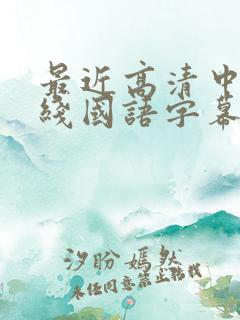 最近高清中
綫國語字幕
汐盼嫣然
未任同意禁止轉載